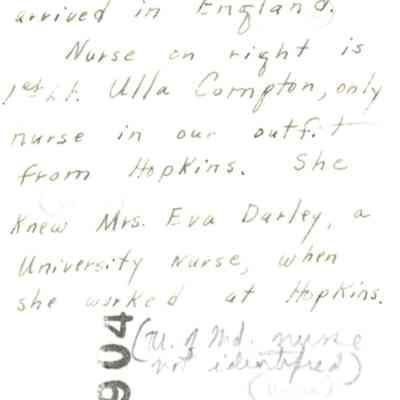 arrived in England.
Nurse on right is
1st Lt. Ulla Compton, only
nurse in our outfit
from Hopkins. She
knew Mrs. Eva Darley, a
University nurse, when
she worked at Hopkins.
(U. of Md. nurse
not identified)
904